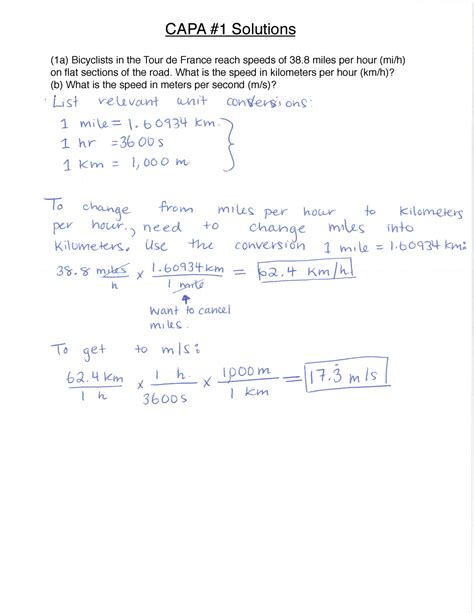 CAPA #1 Solutions
(1a) Bicyclists in the Tour de France reach speeds of 38.8 miles per hour (mi/h)
on flat sections of the road. What is the speed in kilometers per hour (km/h)?
(b) What is the speed in meters per second (m/s)?
· List relevant unit conversions:
1 mile = 1.60934 km.
1 hr = 3600 s
1 km = 1,000 m
To change from miles per hour to kilometers
per hour, need to change miles into
kilometers. Use the conversion 1 mile = 1.60934 km:
38.8 miles/h × 1.60934 km/1 mile = 62.4 km/h
want to cancel
miles.
To get to m/s:
62.4 km/1 h × 1 h./3600 s × 1000 m/1 km = 17.3 m/s